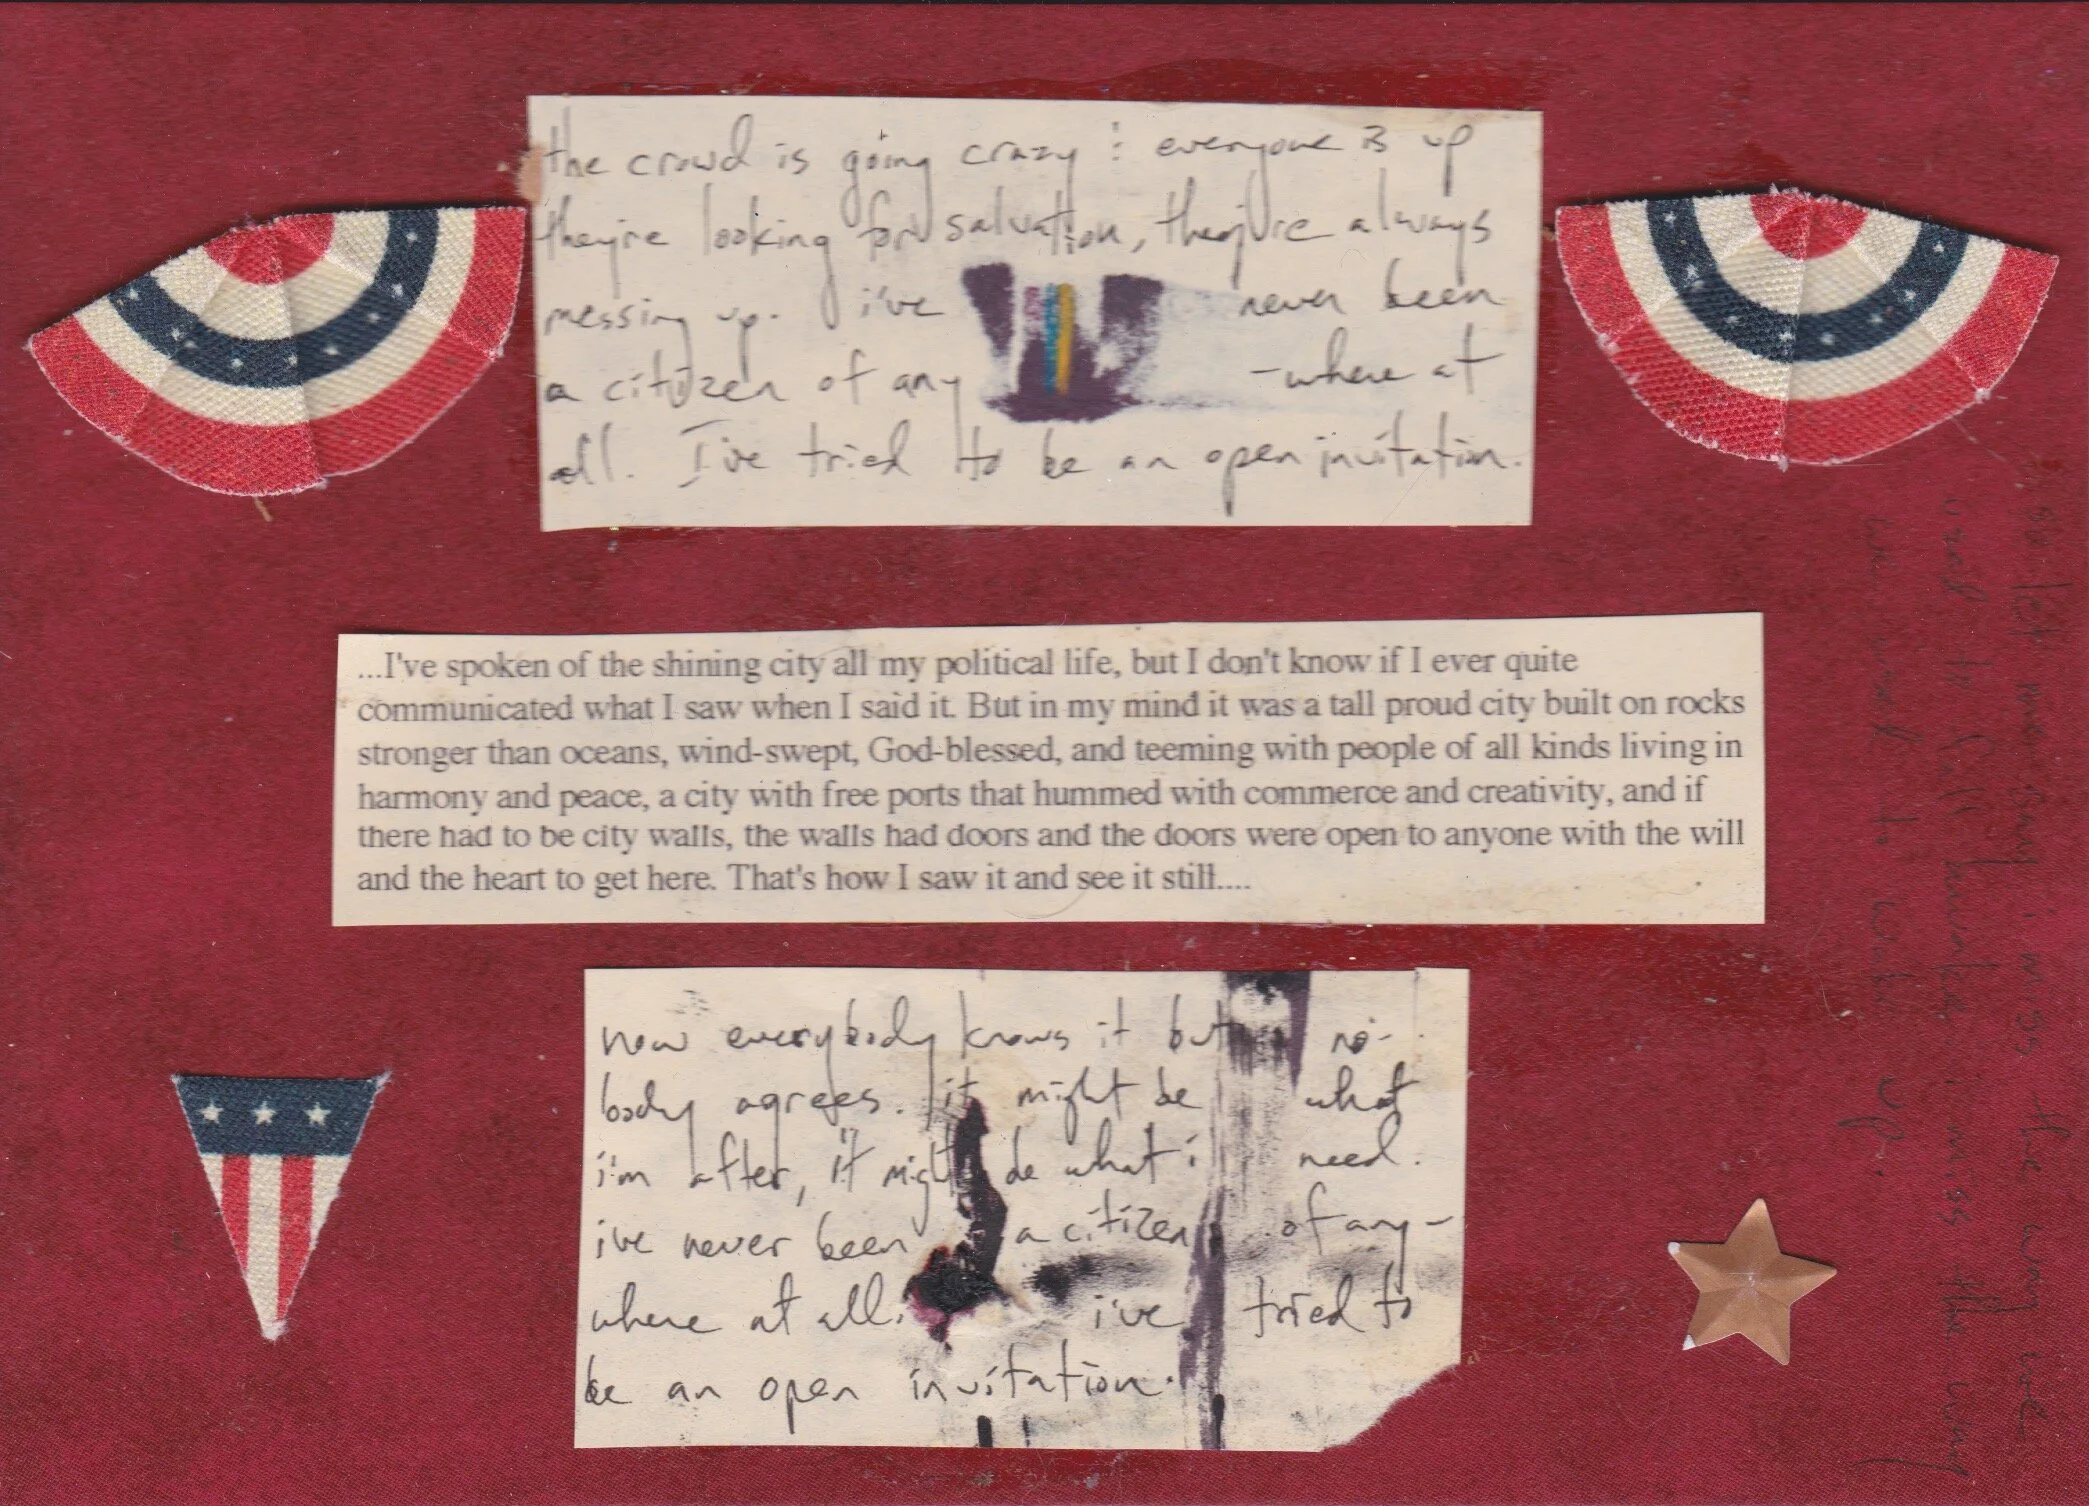 the crowd is going crazy : everyone is up
they're looking for salvation, they're always
messing up. i've never been
a citizen of any -where at
all. I've tried to be an open invitation.
...I've spoken of the shining city all my political life, but I don't know if I ever quite
communicated what I saw when I said it. But in my mind it was a tall proud city built on rocks
stronger than oceans, wind-swept, God-blessed, and teeming with people of all kinds living in
harmony and peace, a city with free ports that hummed with commerce and creativity, and if
there had to be city walls, the walls had doors and the doors were open to anyone with the will
and the heart to get here. That's how I saw it and see it still....
now everybody knows it but no-
body agrees. it might be what
i'm after, it might be what i need.
i've never been a citizen of any-
where at all. i've tried to
be an open invitation.
so let me say i miss the way we
used to fall i miss the way
we used to wake up.